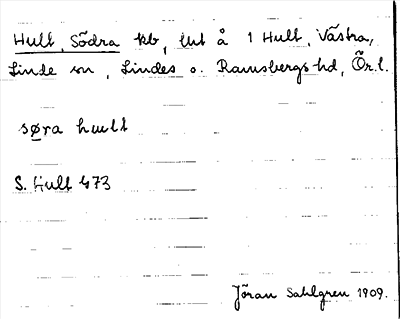 Hult, Södra kb, hut å 1 Hult, Västra,
Linde sn, Lindes o. Ramsbergs hd, Ör.l.
søra hult
S. Hult 473
Jöran Sahlgren 1909.